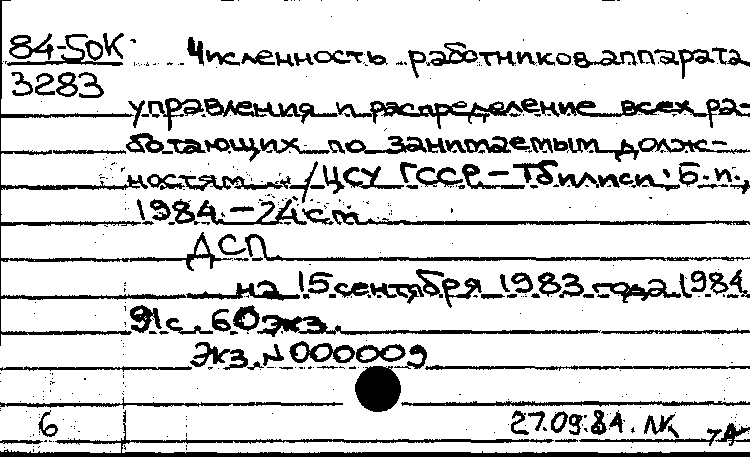 84-50К Численность работников аппарата
3283
управления и распределение всех ра-
ботающих по занимаемым долж-
ностям. /ЦСУ ГССР.-Тбилиси: Б.и.,
1984.-24 см.
ДСП
на 15 сентября 1983 года 1984
91с. 60экз.
Экз.N000009
6 27.09.84. ЛК